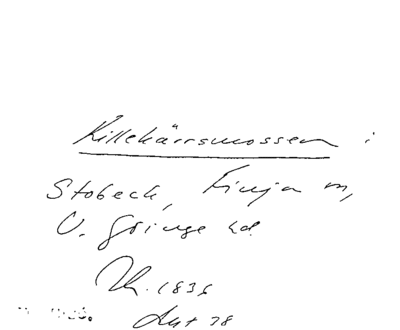 Killekärrsmossen i
Stobeck, Finja sn,
V. Göinge hd.
1836
Akt 28